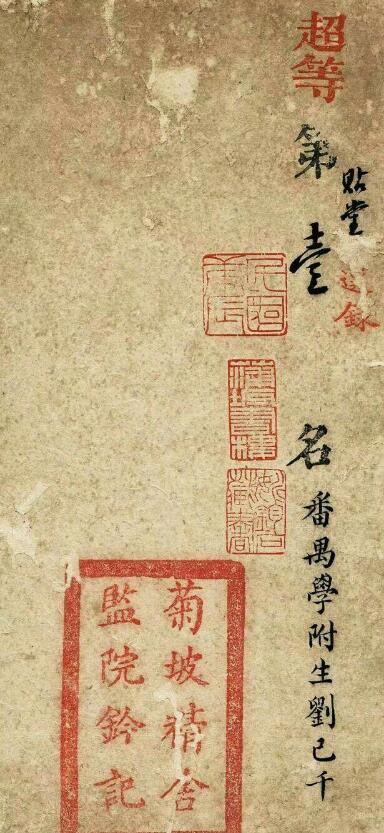 超等
第壹名
貼堂
選錄
番禺學附生劉己千
菊坡精舍
監院鈐記